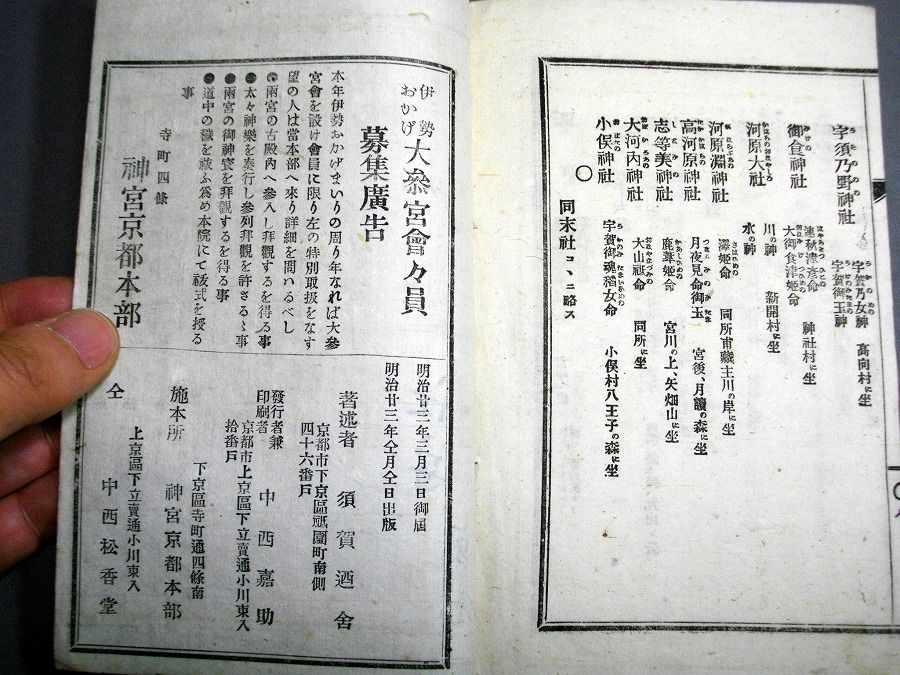 宇須乃野神社
宇賀乃女神
宇賀御玉神
高向村に坐
御食神社
速秋津彦命
大御食津姫命
神社村に坐
河原大社
川の神
水の神
新開村に坐
河原淵神社
澤姫命
同所甫藏主川の岸に坐
高河原神社
月夜見命御玉
宮後、月讀の森に坐
志等美神社
宮川の上、矢畑山に坐
大河內神社
大山祗命
同所に坐
小俣神社
宇賀御魂稻女命
小俣村八王子の森に坐
〇 同末社コヽニ略ス
伊勢おかげ大參宮會々員
募集廣告
本年伊勢おかげまいりの周り年なれば大參
宮會を設け會員に限り左の特別取扱をなす
望の人は當本部へ來り詳細を問ハるべし
●兩宮の古殿內へ參入し拜觀するを得る事
●太々神樂を奏行し參列拜觀を許さるゝ事
●兩宮の御神寶を拜觀するを得る事
●道中の穢を祓ふ爲め本院にて祓式を授る
事
寺町四條
神宮京都本部
明治廿三年三月三日御屆
明治廿三年仝月仝日出版
著述者
京都市下京區祇園町南側
四十六番戶
須賀迺舍
發行者兼
印刷者
京都市上京區下立賣通小川東入
拾番戶
中西嘉助
施本所
下京區寺町通四條南
神宮京都本部
仝
上京區下立賣通小川東入
中西松香堂